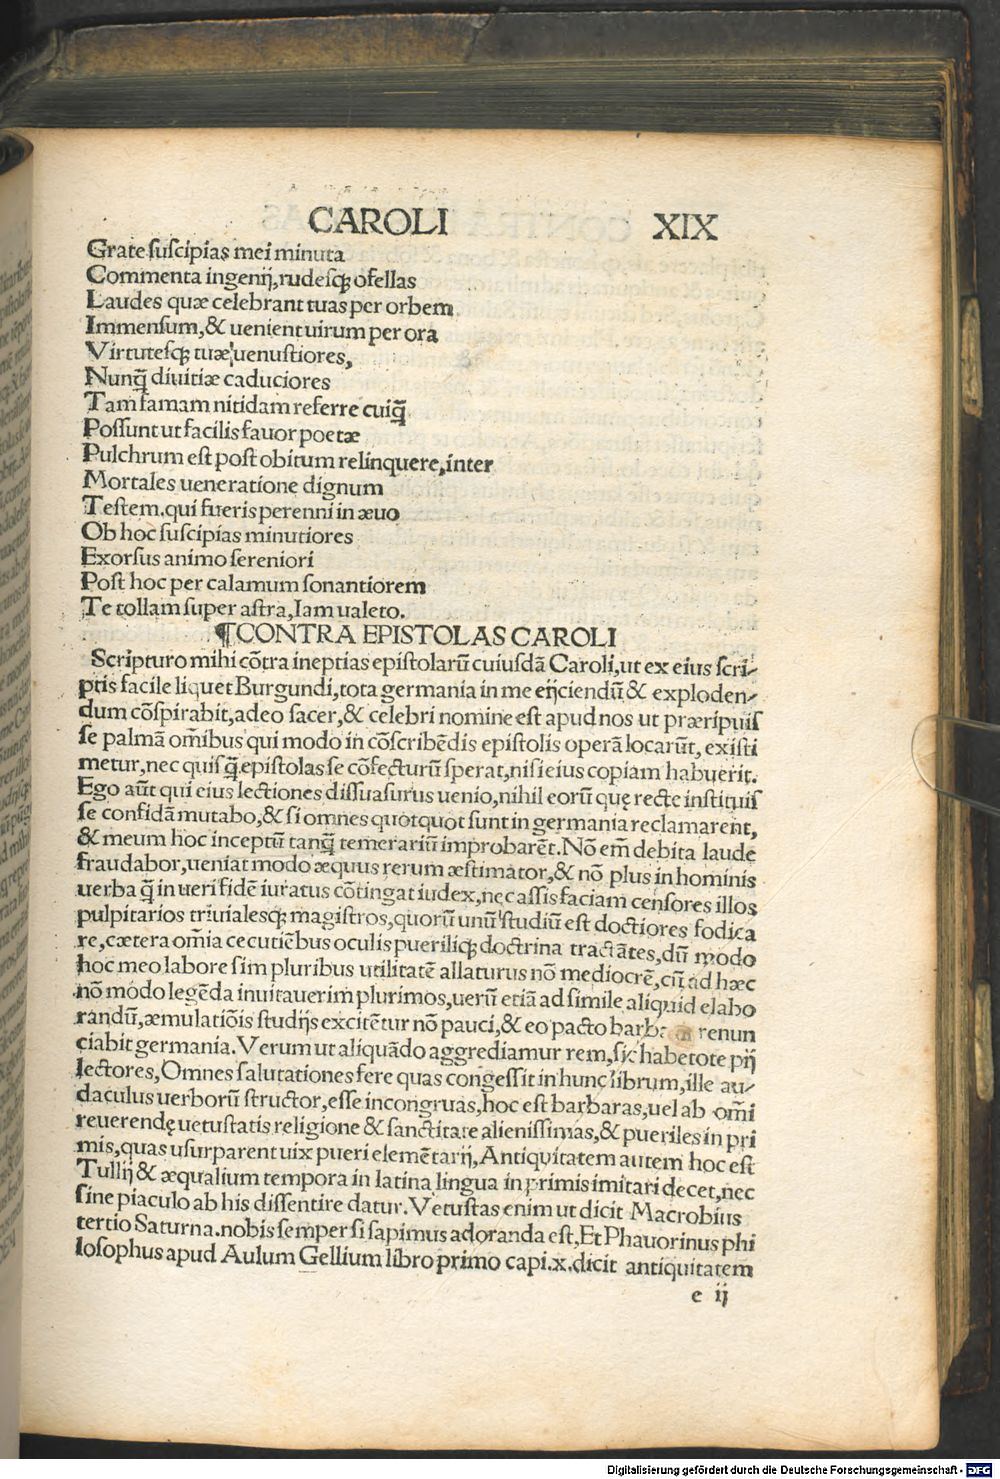 CAROLI XIX
Grate suscipias mei minuta
Commenta ingenij, rudesqꝫ ofellas
Laudes quæ celebrant tuas per orbem
Immensum, & uenient uirum per ora
Virtutesqꝫ tuæ, uenustiores,
Nunꝗ̃ diuitiæ caduciores
Tam famam nitidam referre cuiꝗ̃
Possunt ut facilis fauor poetæ
Pulchrum est post obitum relinquere, inter
Mortales ueneratione dignum
Testem. qui fueris perenni in æuo
Ob hoc suscipias minutiores
Exorsus animo sereniori
Post hoc per calamum sonantiorem
Te tollam super astra, Iam ualeto.
¶CONTRA EPISTOLAS CAROLI
Scripturo mihi cõtra ineptias epistolarũ cuiusdã Caroli, ut ex eius scri-
ptis facile liquet Burgundi, tota germania in me eijciendũ & exploden-
dum cõspirabit, adeo sacer, & celebri nomine est apud nos ut præripuis
se palmã om̃ibus qui modo in cõscribẽdis epistolis operã locarũt, existi
metur, nec quisꝗ̃ epistolas se cõfecturũ sperat, nisi eius copiam habuerit.
Ego aũt qui eius lectiones dissuasurus uenio, nihil eorũ quę recte instituis
se confidã mutabo, & si omnes quotquot sunt in germania reclamarent,
& meum hoc inceptũ tanꝗ̃ temerariũ improbarẽt. Nõ em̃ debita laude
fraudabor, ueniat modo æquus rerum æstimator, & nõ plus in hominis
uerba ꝗ̃ in ueri fidẽ iuratus cõtingat iudex, nec assis faciam censores illos
pulpitarios triuialesqꝫ magistros, quorũ unũ studiũ est doctiores fodica
re, cætera om̃ia cecutiẽbus oculis puerilíqꝫ doctrina tractãtes, dũ modo
hoc meo labore sim pluribus utilitatẽ allaturus nõ mediocrẽ, cũ ad hæc
nõ modo legẽda inuitauerim plurimos, uerũ etiã ad simile aliquid elabo
randũ, æmulatiõis studijs excitẽtur nõ pauci, & eo pacto renun
ciabit germania. Verum ut aliquãdo aggrediamur rem, sic habetote pij
lectores, Omnes salutationes fere quas congessit in hunc librum, ille au-
daculus uerborũ structor, esse incongruas, hoc est barbaras, uel ab om̃i
reuerendę uetustatis religione & sanctitate alienissimas, & pueriles in pri
mis, quas usurparent uix pueri elemẽtarij, Antiquitatem autem hoc est
Tullij & æqualium tempora in latina lingua in primis imitari decet, nec
sine piaculo ab his dissentire datur. Vetustas enim ut dicit Macrobius
tertio Saturna. nobis semper si sapimus adoranda est, Et Phauorinus phi
losophus apud Aulum Gellium libro primo capi. x. dicit antiquitatem
e ij
Digitalisierung gefördert durch die Deutsche Forschungsgemeinschaft - DFG